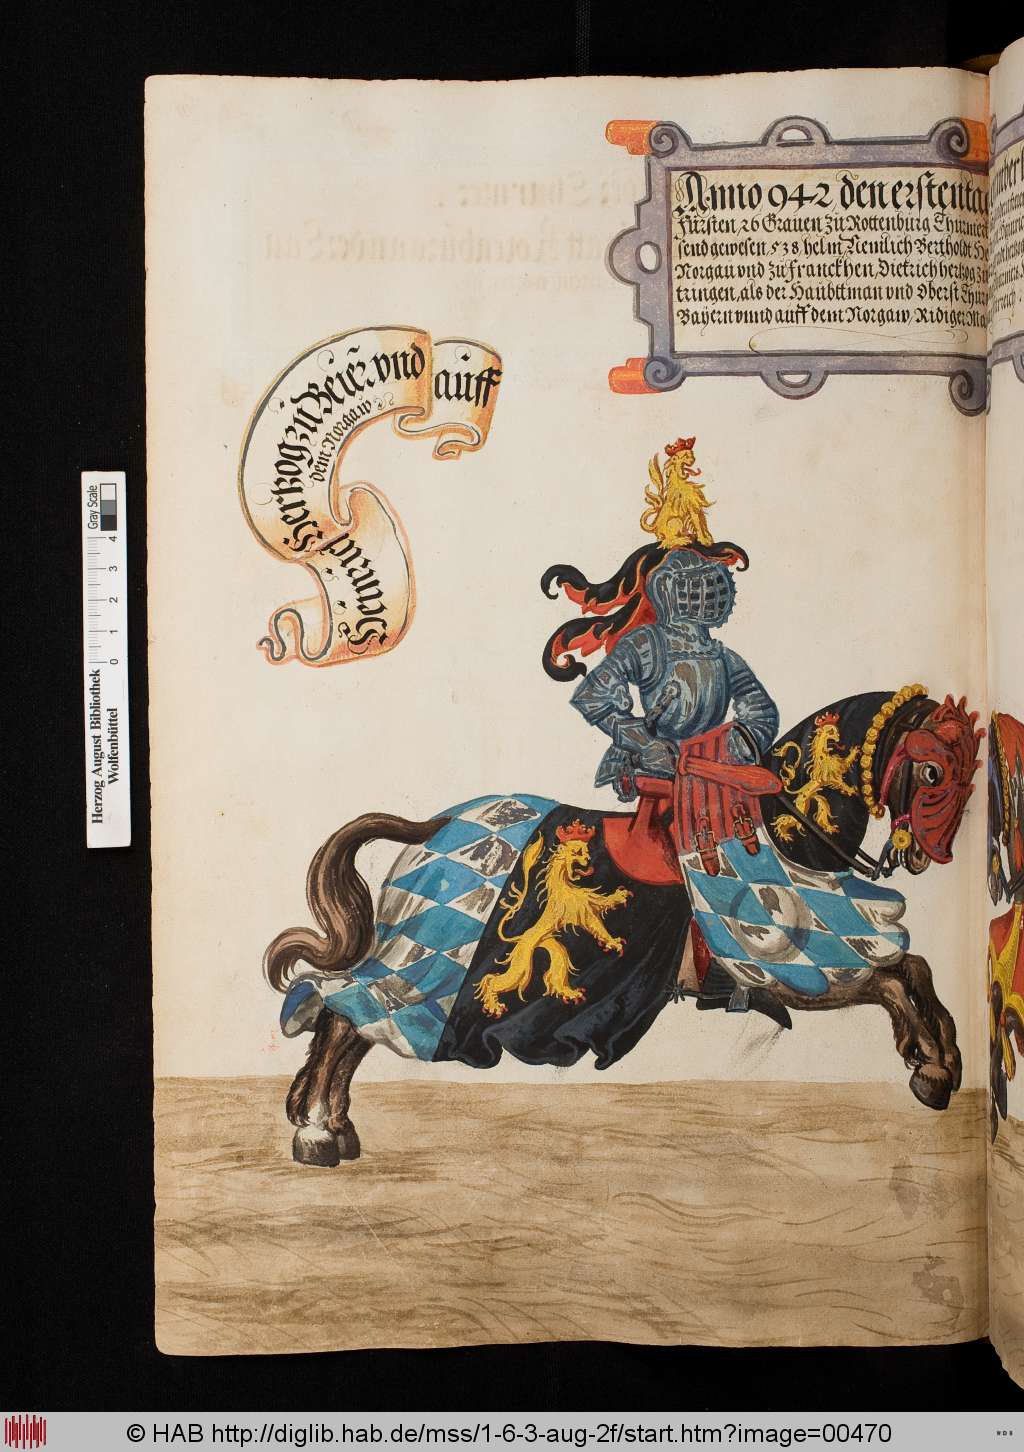 Anno 942 den ersten ta
Fürsten, 26 Grauen zu Rottenburg Thurnier
send gewesen, 538 helm Nemlich Bertholdt He
Norgau vnd zu Franckhen, Dietrich hertzog z
tringen, als der Haubttman vnd Oberst Thur
Bayern vnnd auff dem Norgaw, Ridiger Ma
Heinrich Hertzog zů Beiern vnd auff
dem Norgaw
Gray Scale
0 1 2 3 4
Herzog August Bibliothek
Wolfenbüttel
© HAB http://diglib.hab.de/mss/1-6-3-aug-2f/start.htm?image=00470